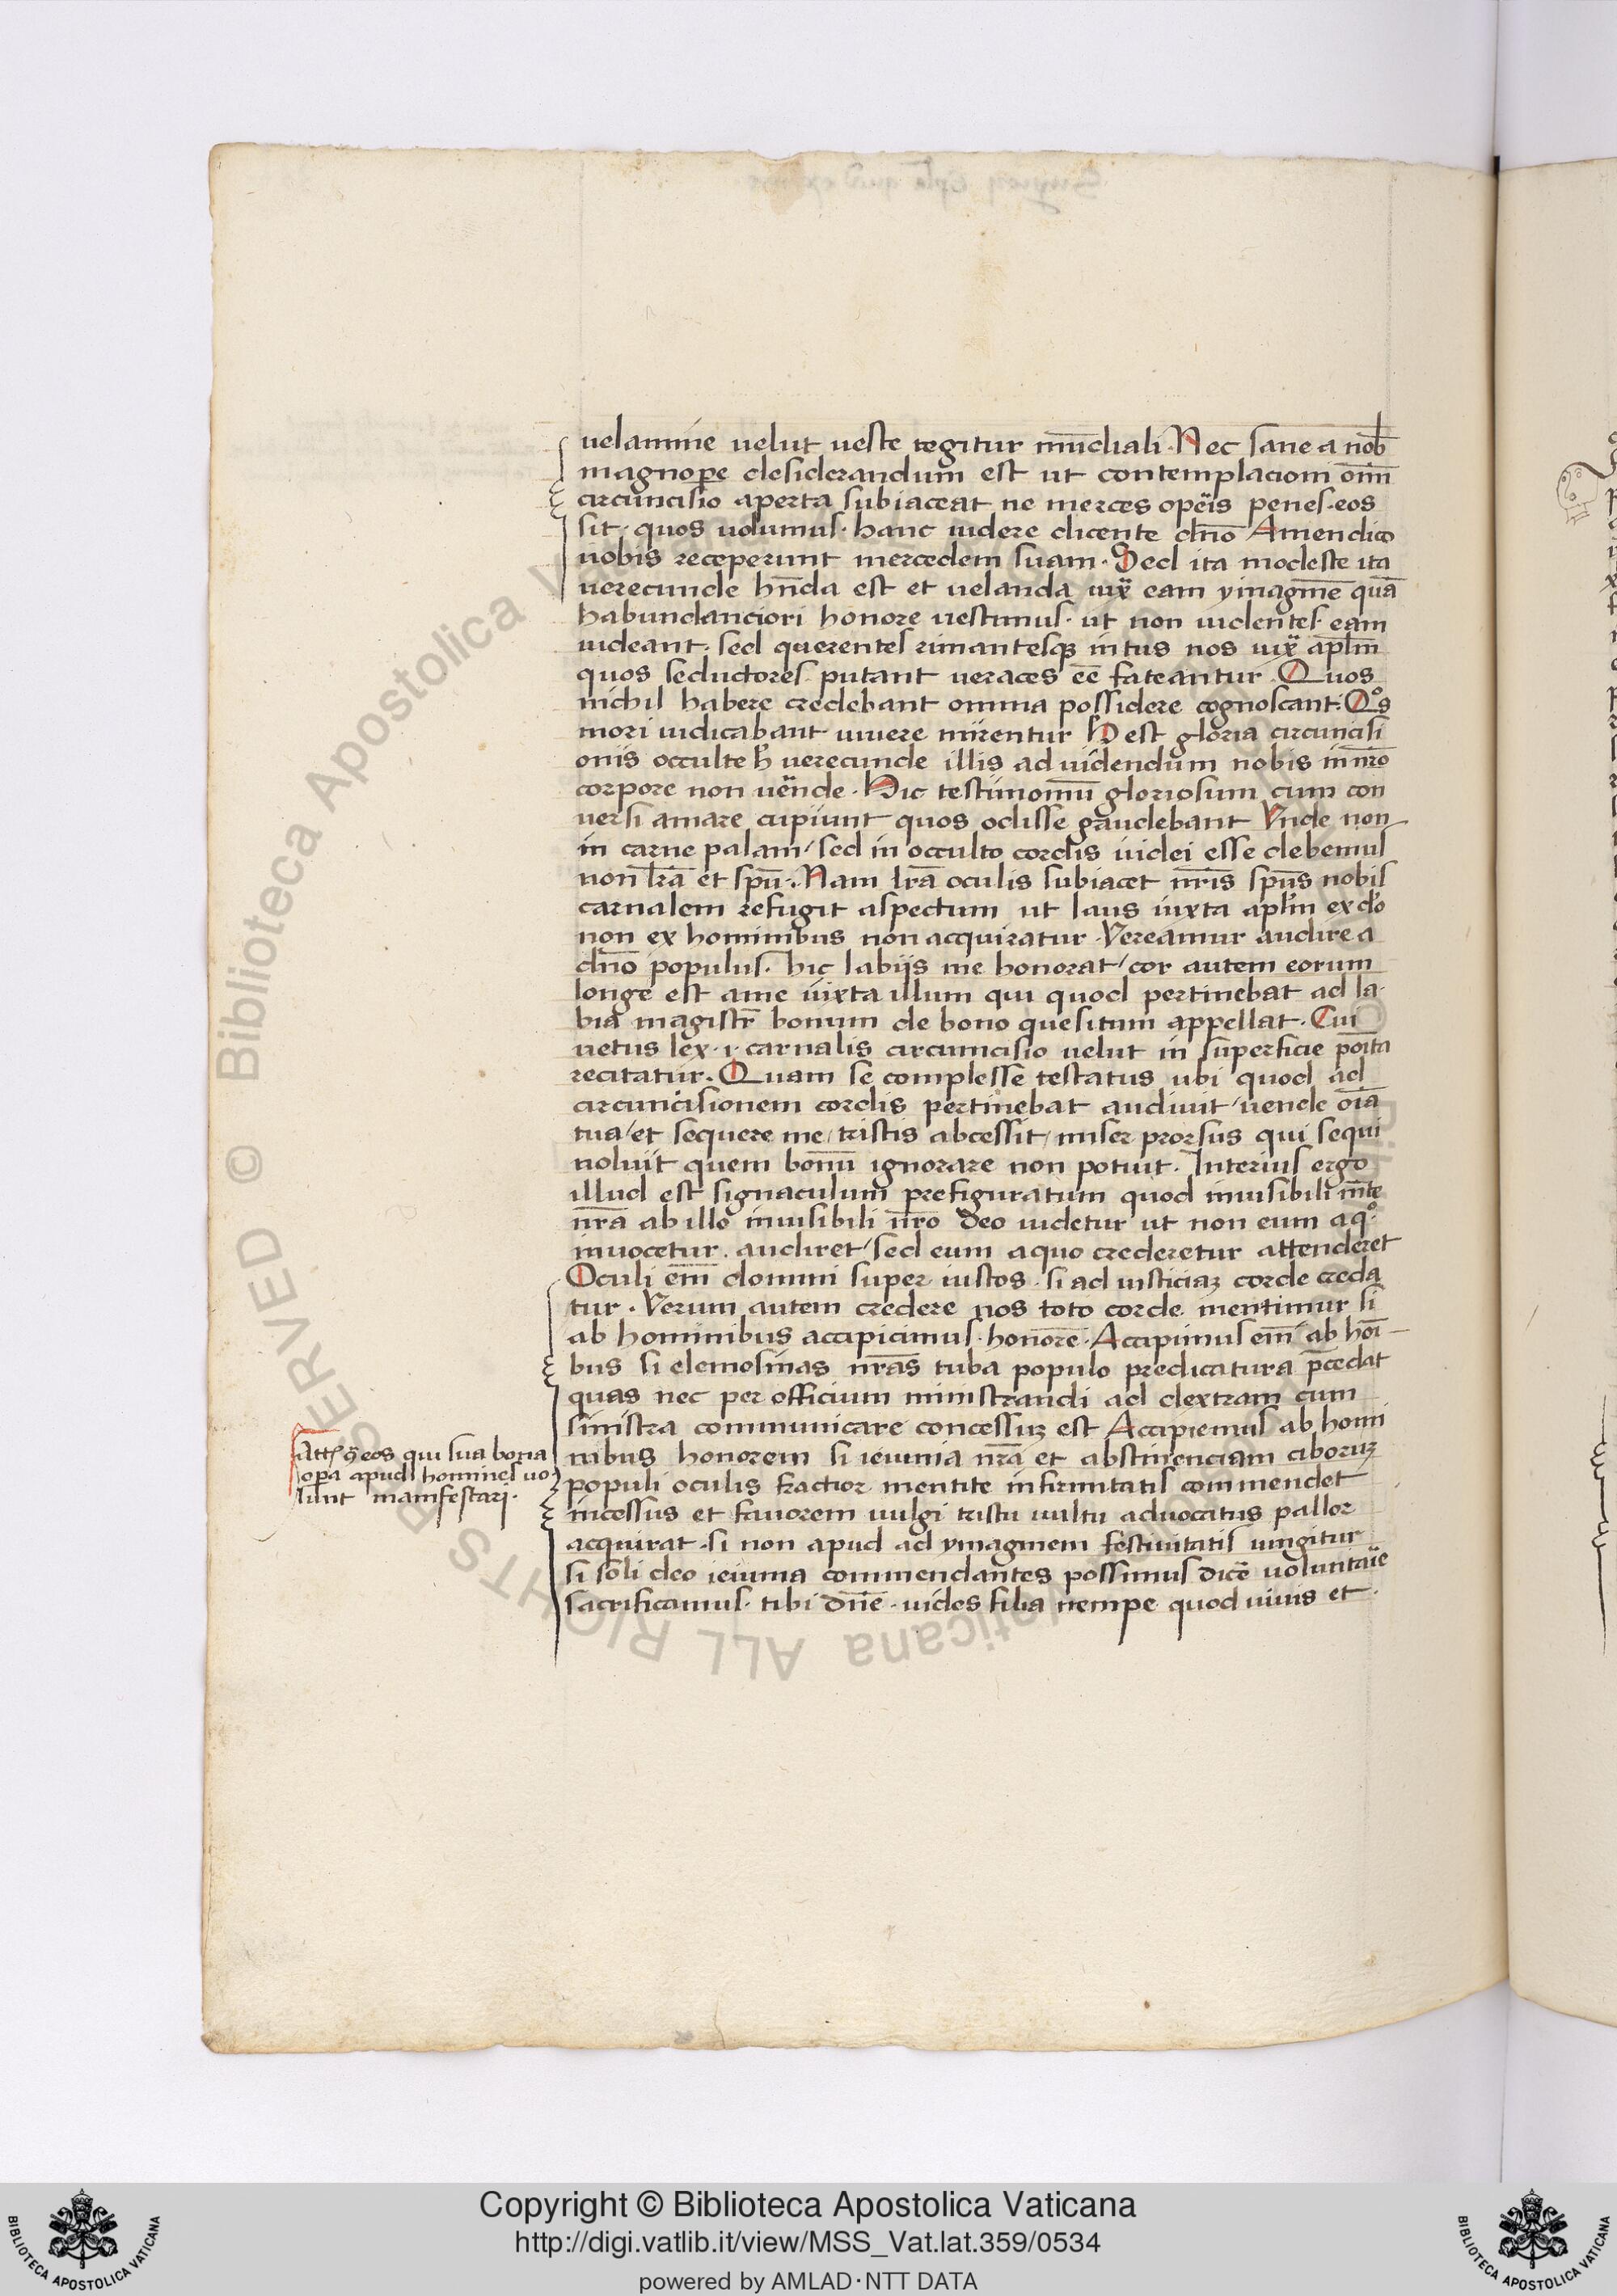 uelamine uelut ueste tegitur mūdiali. Nec sane a nob̄
magnopere desiderandum est ut contemplacioni om̄
circuncisio aperta subiaceat ne merces opeis penes eos
sit. quos uolumus. hanc uidere dicente dn̄o Amen dico
uobis receperunt mercedem suam. Sed ita modeste ita
uerecunde hn̄da est et uelanda iux̄ eam ymagine quā
habundanciori honore uestimus. ut non uidentes eam
uideant. sed querentes rimantesqʒ intus nos iux̄ aplm̄
quos seductores putant ueraces eē fateantur. Quos
nichil habere credebant omnia possidere cognoscant. Qos
mori iudicabant uiuere mirentur H est gloria circuncisi
onis occulte h uerecunde illis ad uidendum nobis in nr̄o
corpore non uēnde. Hic testimoniū gloriosum cum con
uersi amare cupiunt quos odisse gaudebant Vnde non
in carne palam / sed in occulto cordis iudei esse debemus
non lr̄a et spū. Nam lr̄a oculis subiacet nr̄is sp̄us nobis
carnalem refugit aspectum ut laus iuxta aplm̄ ex do
non ex hominibus non acquiratur. Vereamur audire a
dn̄o populus. hic labijs me honorat / cor autem eorum
longe est a me iuxta illum qui quod pertinebat ad la
bia magistr̄ bonum de bono quesitum appellat. Cui
uetus lex .i. carnalis circumcisio uelut in superficie poita
recitatur. Quam se complesse testatus ubi quod ad
circuncisionem cordis pertinebat audiuit / uende oīa
tua / et sequere me / tristis abcessit / miser prorsus qui sequi
noluit quem bonū ignorare non potuit. Interius ergo
illud est signaculum prefiguratum quod inuisibili mn̄te
nr̄a ab illo inuisibili nr̄o deo uidetur ut non eum a qo
inuocetur. audiret / sed eum a quo crederetur attenderet
Oculi em̄ domini super iustos. si ad iusticiaʒ corde creda
tur. Verum autem credere nos toto corde mentimur si
ab hominibus accipicimus. honore. Accipimus em̄ ab hoī
bus si elemosinas nr̄as tuba populo predicatura p̄cedat
quas nec per officium ministrandi ad dextram cum
sinistra communicare concessuʒ est Accipiemus ab homi
nibus honorem si ieiunia nr̄a et abstinenciam ciborūʒ
populi oculis fractior mentite infirmitatis commendet
incessus et fauorem uulgi tristi uultu aduocatus pallor
acquirat. si non apud ad ymaginem festiuitatis ungitur
si soli deo ieiunia commendantes possimus dicē uoluntaīe
sacrificamus. tibi dn̄e. uides filia nempe quod uiuis et
qui sua bona
opera apud homines uo
lunt manifestari.
Copyright © Biblioteca Apostolica Vaticana
http://digi.vatlib.it/view/MSS_Vat.lat.359/0534
powered by AMLAD·NTT DATA
BIBLIOTECA APOSTOLICA VATICANA
BIBLIOTECA APOSTOLICA VATICANA